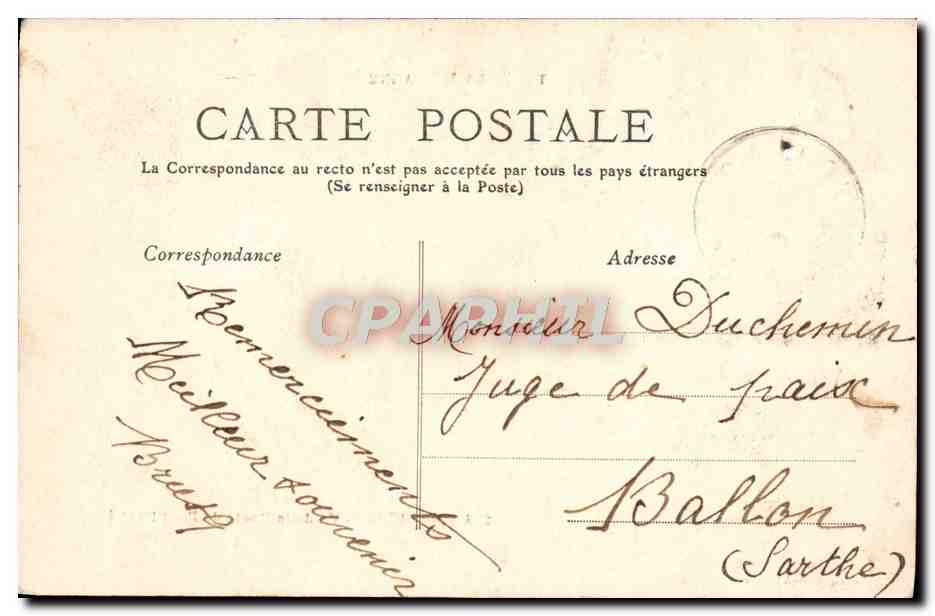 CARTE POSTALE
La Correspondance au recto n'est pas acceptée par tous les pays étrangers
(Se renseigner à la Poste)
Correspondance
Adresse
Remerciements
Meilleur souvenir
CPAPHIL
Monsieur Duchemin
Juge de paix
Ballon
(Sarthe)